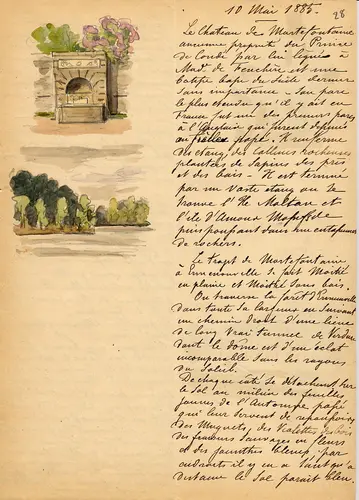 10 Mai 1885.
28
Le Chateau de Mortefontaine
ancienne propriété du Prince
de Condé par lui légué à
Mad. de Feuchère est une
bâtisse du Siècle dernier
sans importance - Son parc
le plus étendu qu'il y ait en
France fut un des premiers parcs
à l'Anglaise qui furent dessinés
au Siècle passé. Il renferme
des étangs, des Collines rocheuses
plantées de Sapins des prés
et des bois - Il est terminé
par un vaste étang où se
trouve l'Ile Molton et
l'île d'Amour
puis pourtant dans un
de rochers.
Le trajet de Mortefontaine
à Ermenonville se fait Moitié
en plaine et Moitié sous bois.
On traverse la forêt d'Ermenonville
dans toute sa largeur en suivant
un chemin droit d'une lieue
de long vrai tunnel de Verdure
dont le dôme est d'un éclat
incomparable sous les rayons
du Soleil.
De chaque côté se détachent sur
le Sol au milieu des feuilles
jaunes de l'Automne passé
qui leur servent de repoussoirs
des Muguets, des Violettes des bois
des fraisiers Sauvages en fleurs
et des jacinthes bleues. par
endroits il y en a tant qu'à
distance le Sol paraît bleu.